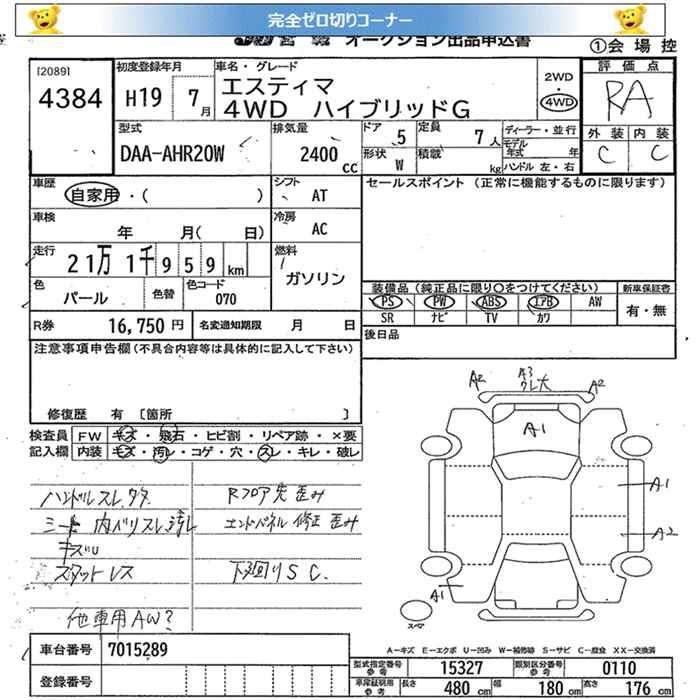 完全ゼロ切りコーナー
オークション出品申込書
①会場控
[2089]
4384
初度登録年月
H19 7月
車名・グレード
エスティマ
4WD ハイブリッドG
2WD
・
4WD
評価点
RA
外装 内装
C C
型式
DAA-AHR20W
排気量
2400 cc
ドア 5
定員 7人
形状 W
積載 kg
ディーラー・並行
モデル年式 年
ハンドル 左・右
車歴
自家用・( )
シフト
AT
セールスポイント (正常に機能するものに限ります)
車検
年 月( 日)
冷房
AC
走行
21万 1千 9 5 9 km
燃料
ガソリン
色
パール
色替
色コード
070
装備品 (純正品に限り○をつけてください)
PS PW ABS エアB AW
SR ナビ TV カワ
新車保証書
有・無
R券 16,750円
名変通知期限 月 日
後日品
注意事項申告欄(不具合内容等は具体的に記入して下さい)
修復歴 有 [箇所 ]
検査員記入欄
FW キズ・飛石・ヒビ割・リペア跡・×要
内装 キズ・汚レ・コゲ・穴・スレ・キレ・破レ
ハンドルスレ,タタ
シート 内ベリスレ,汚レ
キズU
スタットレス
他車用AW?
Rフロア先歪み
エンドパネル修正歪み
下廻りSC.
A2
A3
ワレ大
A2
A1
A1
A2
A1
スペア
A－キズ E－エクボ U－凹み W－補修跡 S－サビ C－腐食 XX－交換済
車台番号 7015289
登録番号
型式指定番号 参考 15327
類別区分番号 参考 0110
車庫証明用 参考
長さ 480 cm
幅 180 cm
高さ 176 cm